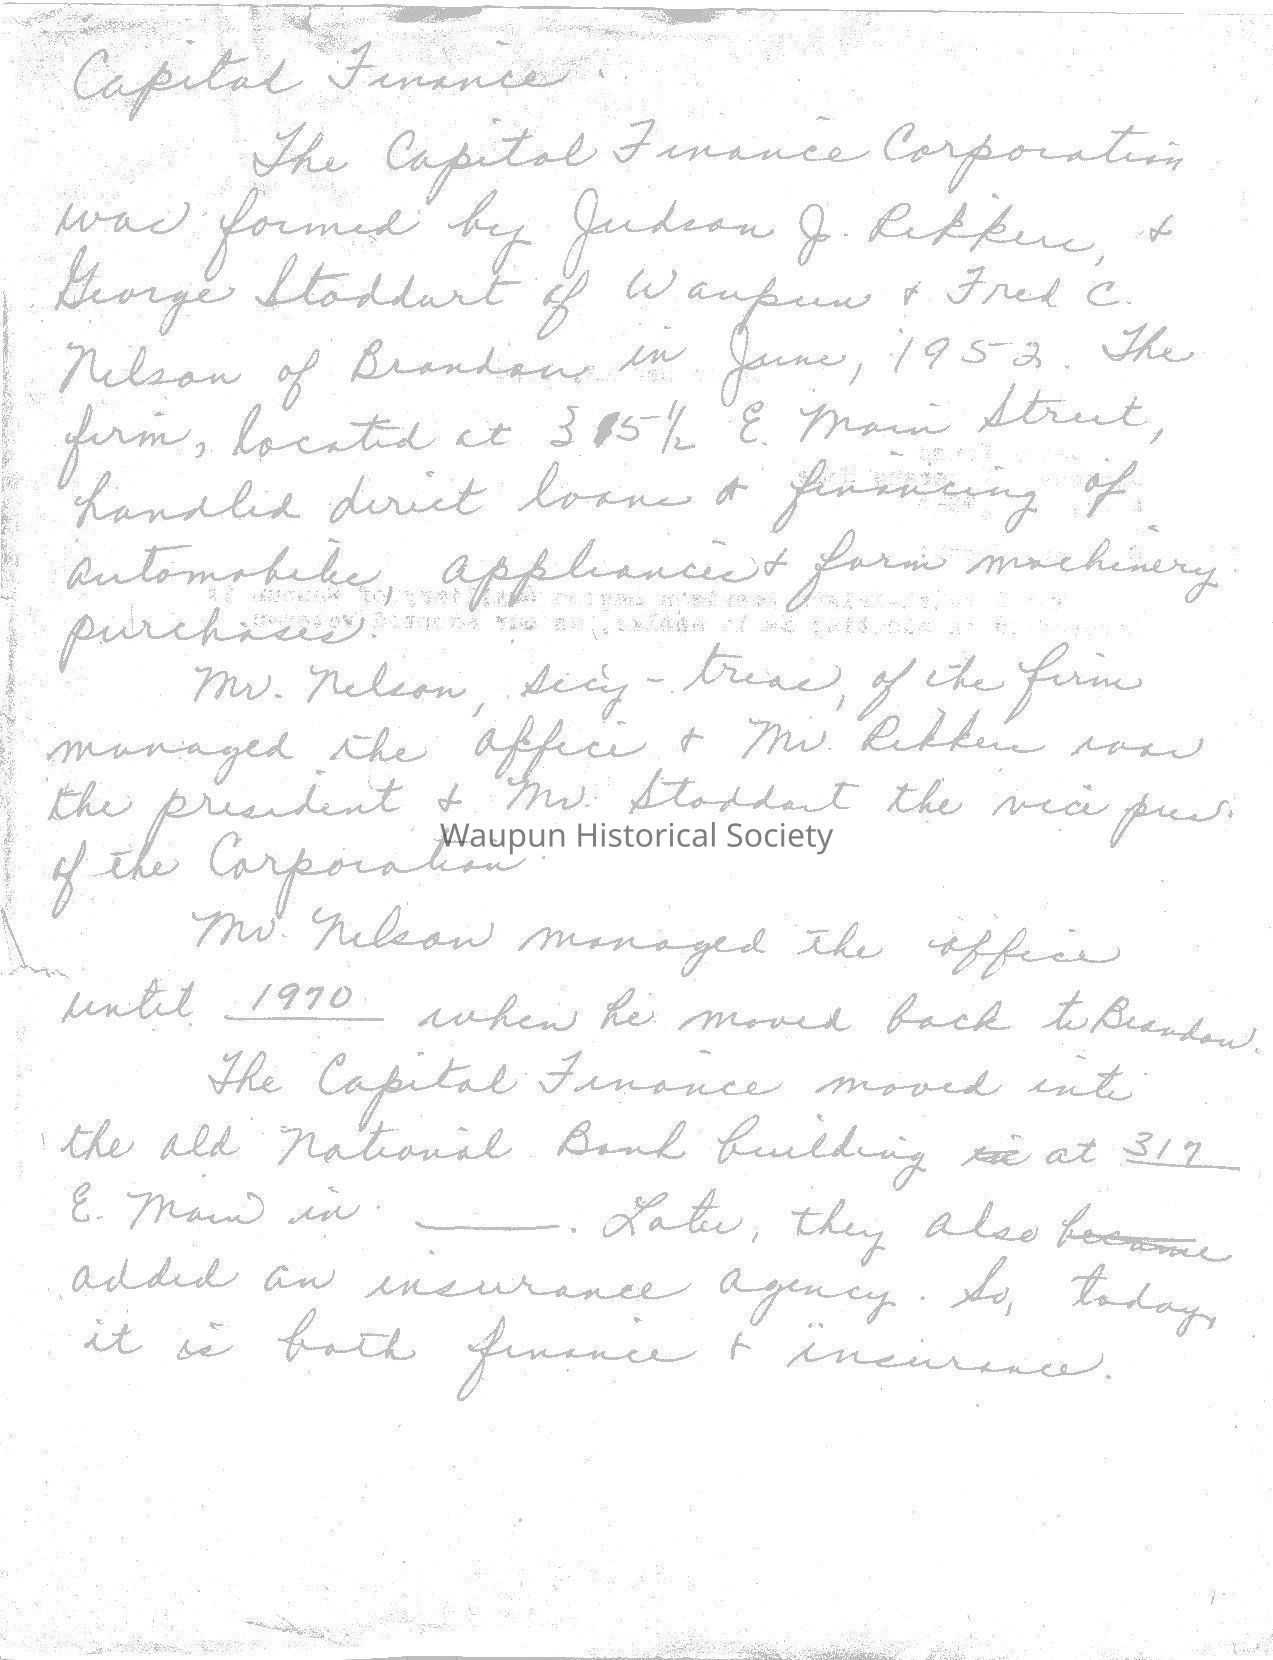 Capital Finance.
The Capital Finance Corporation
was formed by Judson J. Rikkers, &
George Stoddart of Waupun & Fred C.
Nelson of Brandon in June, 1952. The
firm, located at 315 1/2 E. Main Street,
handled direct loans & financing of
automobiles, appliances & farm machinery
purchases.
Mr. Nelson, sec'y - treas, of the firm
managed the office & Mr. Rikkers was
the president & Mr. Stoddart the vice pres.
of the Corporation.
Waupun Historical Society
Mr. Nelson managed the office
until 1970 when he moved back to Brandon.
The Capital Finance moved into
the old National Bank building at 317
E. Main in ____. Later, they also became
added an insurance agency. So, today,
it is both finance & insurance.